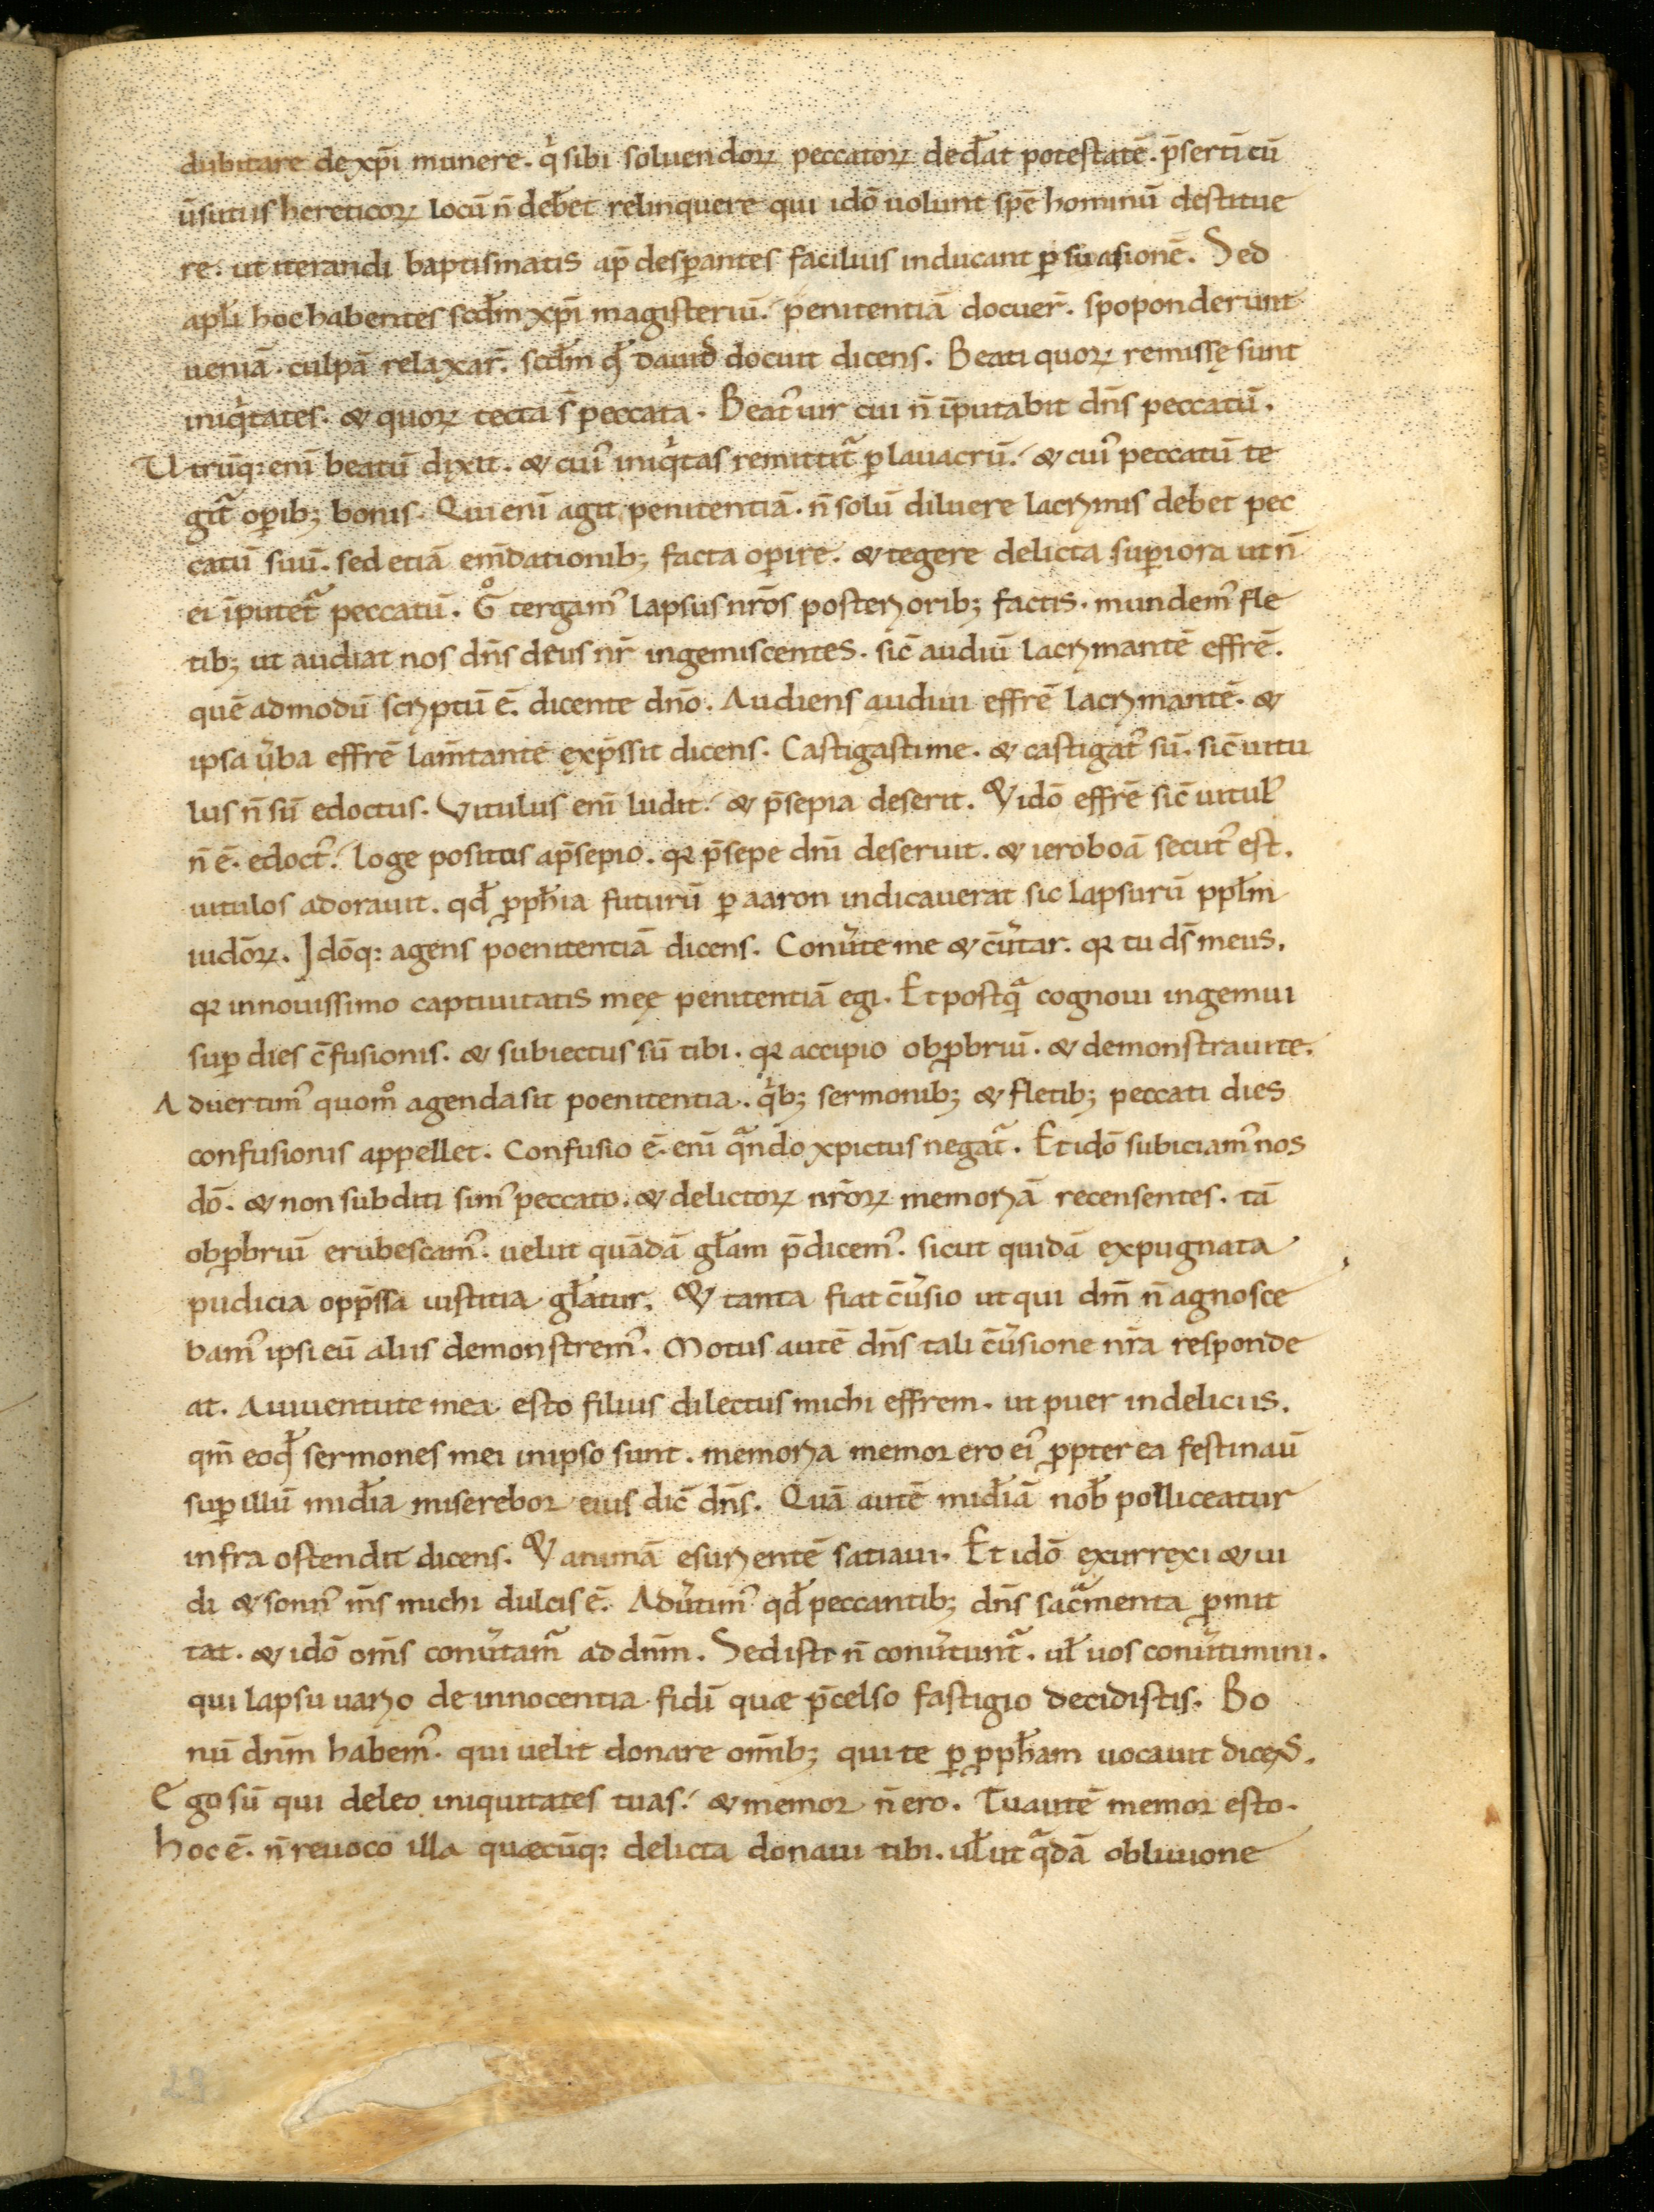 dubitare de xp̄i munere. qͥ sibi soluendoꝝ peccatoꝝ dedꝉat potestatē. p̄sertī cū
ūsutiis hereticoꝝ locū n̄ debꝫet relinquere qui idō uolunt spē hominū destitue
re. ut iterandi baptismatis ap̄ desꝑantes facilius inducant ꝑsuasionē. Sed
apłi hoc habentes scđm xp̄i magisteriū. penitentiā docuer̄. spoponderunt
ueniā. culpā relaxar̄. scđm qđ dauid docuit dicens. Beati quoꝝ remissę sunt
iniqͥtates. & quoꝝ tecta s̄ peccata. Beatꝰ uir cui n̄ īputabit dn̄s peccatū.
Utrūq: enī beatū dixit. & cuiꝰ iniqͥtas remittit᷑ ꝑ lauacrū. & cuiꝰ peccatū te
git᷑ oꝑibꝫ bonis. Qui enī agit penitentiā. n̄ solū diluere lacrimis debet pec
catū suū. sed etiā em̄dationibꝫ facta oꝑire. & tegere delicta suꝑiora ut n̄
ei īputet᷑ peccatū. Gͦ tergamꝰ lapsus nr̄os posterioribꝫ factis. mundemꝰ fle
tibꝫ ut audiat nos dn̄s deus nr̄ ingemiscentes. sic̄ audiū lacrimantē effrē.
quē admodū scriptū ē. dicente dn̄o. Audiens audiui effrē lacrimantē. &
ipsa ūba effrē lam̄tantē exp̄ssit dicens. Castigasti me. & castigatꝰ sū. sic̄ uitu
lus n̄ sū edoctus. Vitulus enī ludit. & p̄sepia deserit. & idō effrē sic̄ uitulꝰ
n̄ ē. edoctꝰ. loge positus a p̄sepio. qꝛ p̄sepe dn̄i deseruit. & ieroboā secutꝰ est.
uitulos adorauit. qđ ꝓpħia futurū ꝑ aaron indicauerat sic lapsurū ppłm
iudōꝝ. Idōq: agens poenitentiā dicens. Conūte me & c̄ūtar. qꝛ tu ds̄ meus.
qꝛ in nouissimo captiuitatis meę penitentiā egi. Et postqᷓ cognoui ingemui
suꝑ dies c̄fusionis. & subiectus sū tibi. qꝛ accipio obꝓbriū. & demonstraui te.
Aduertimꝰ quom̊ agenda sit poenitentia. qͥbꝫ sermonibꝫ & fletibꝫ peccati dies
confusionis appellet. Confusio ē. enī qᷓndo xpictus negat᷑. Et idō subiciamꝰ nos
dō. & non subditi simꝰ peccato. & delictoꝝ nr̄oꝝ memoriā recensentes. tā
obꝓbriū erubescamꝰ. uelut quādā głam p̄dicemꝰ. sicut quidā expugnata
pudicia opp̄ssa iustitia głatur. & tanta fiat c̄ūsio ut qui dm̄ n̄ agnosce
bamꝰ ipsi eū aliis demonstremꝰ. Motus autē dn̄s tali c̄ūsione nr̄a responde
at. A iuuentute mea esto filius dilectus michi effrem. ut puer in deliciis.
qm̄ eo qđ sermones mei in ipso sunt. memoria memor ero eiꝰ ꝓpter ea festinaū
suꝑ illū mid̄ia miserebor eius dic̄ dn̄s. Quā autē mid̄iā nob̄ polliceatur
infra ostendit dicens. & animā esurientē satiaui. Et idō exurrexi & ui
di & sonnꝰ m̄s michi dulcis ē. Adūtimꝰ qđ peccantibꝫ dn̄s sacᷓmenta ꝑmit
tat. & idō om̄s conūtam᷑ ad dn̄m. Sed isti n̄ conūtunt᷑. uł uos conūtimini.
qui lapsu uario de innocentia fidī quae p̄celso fastigio decidistis. Bo
nū dn̄m habemꝰ. qui uelit donare om̄ibꝫ qui te ꝑ ꝓpħam uocauit dicens.
Ego sū qui deleo iniquitates tuas. & memor n̄ ero. Tu autē memor esto.
hoc ē. n̄ reuoco illa quaecūq: delicta donaui tibi. uł ut qᷓdā obliuione